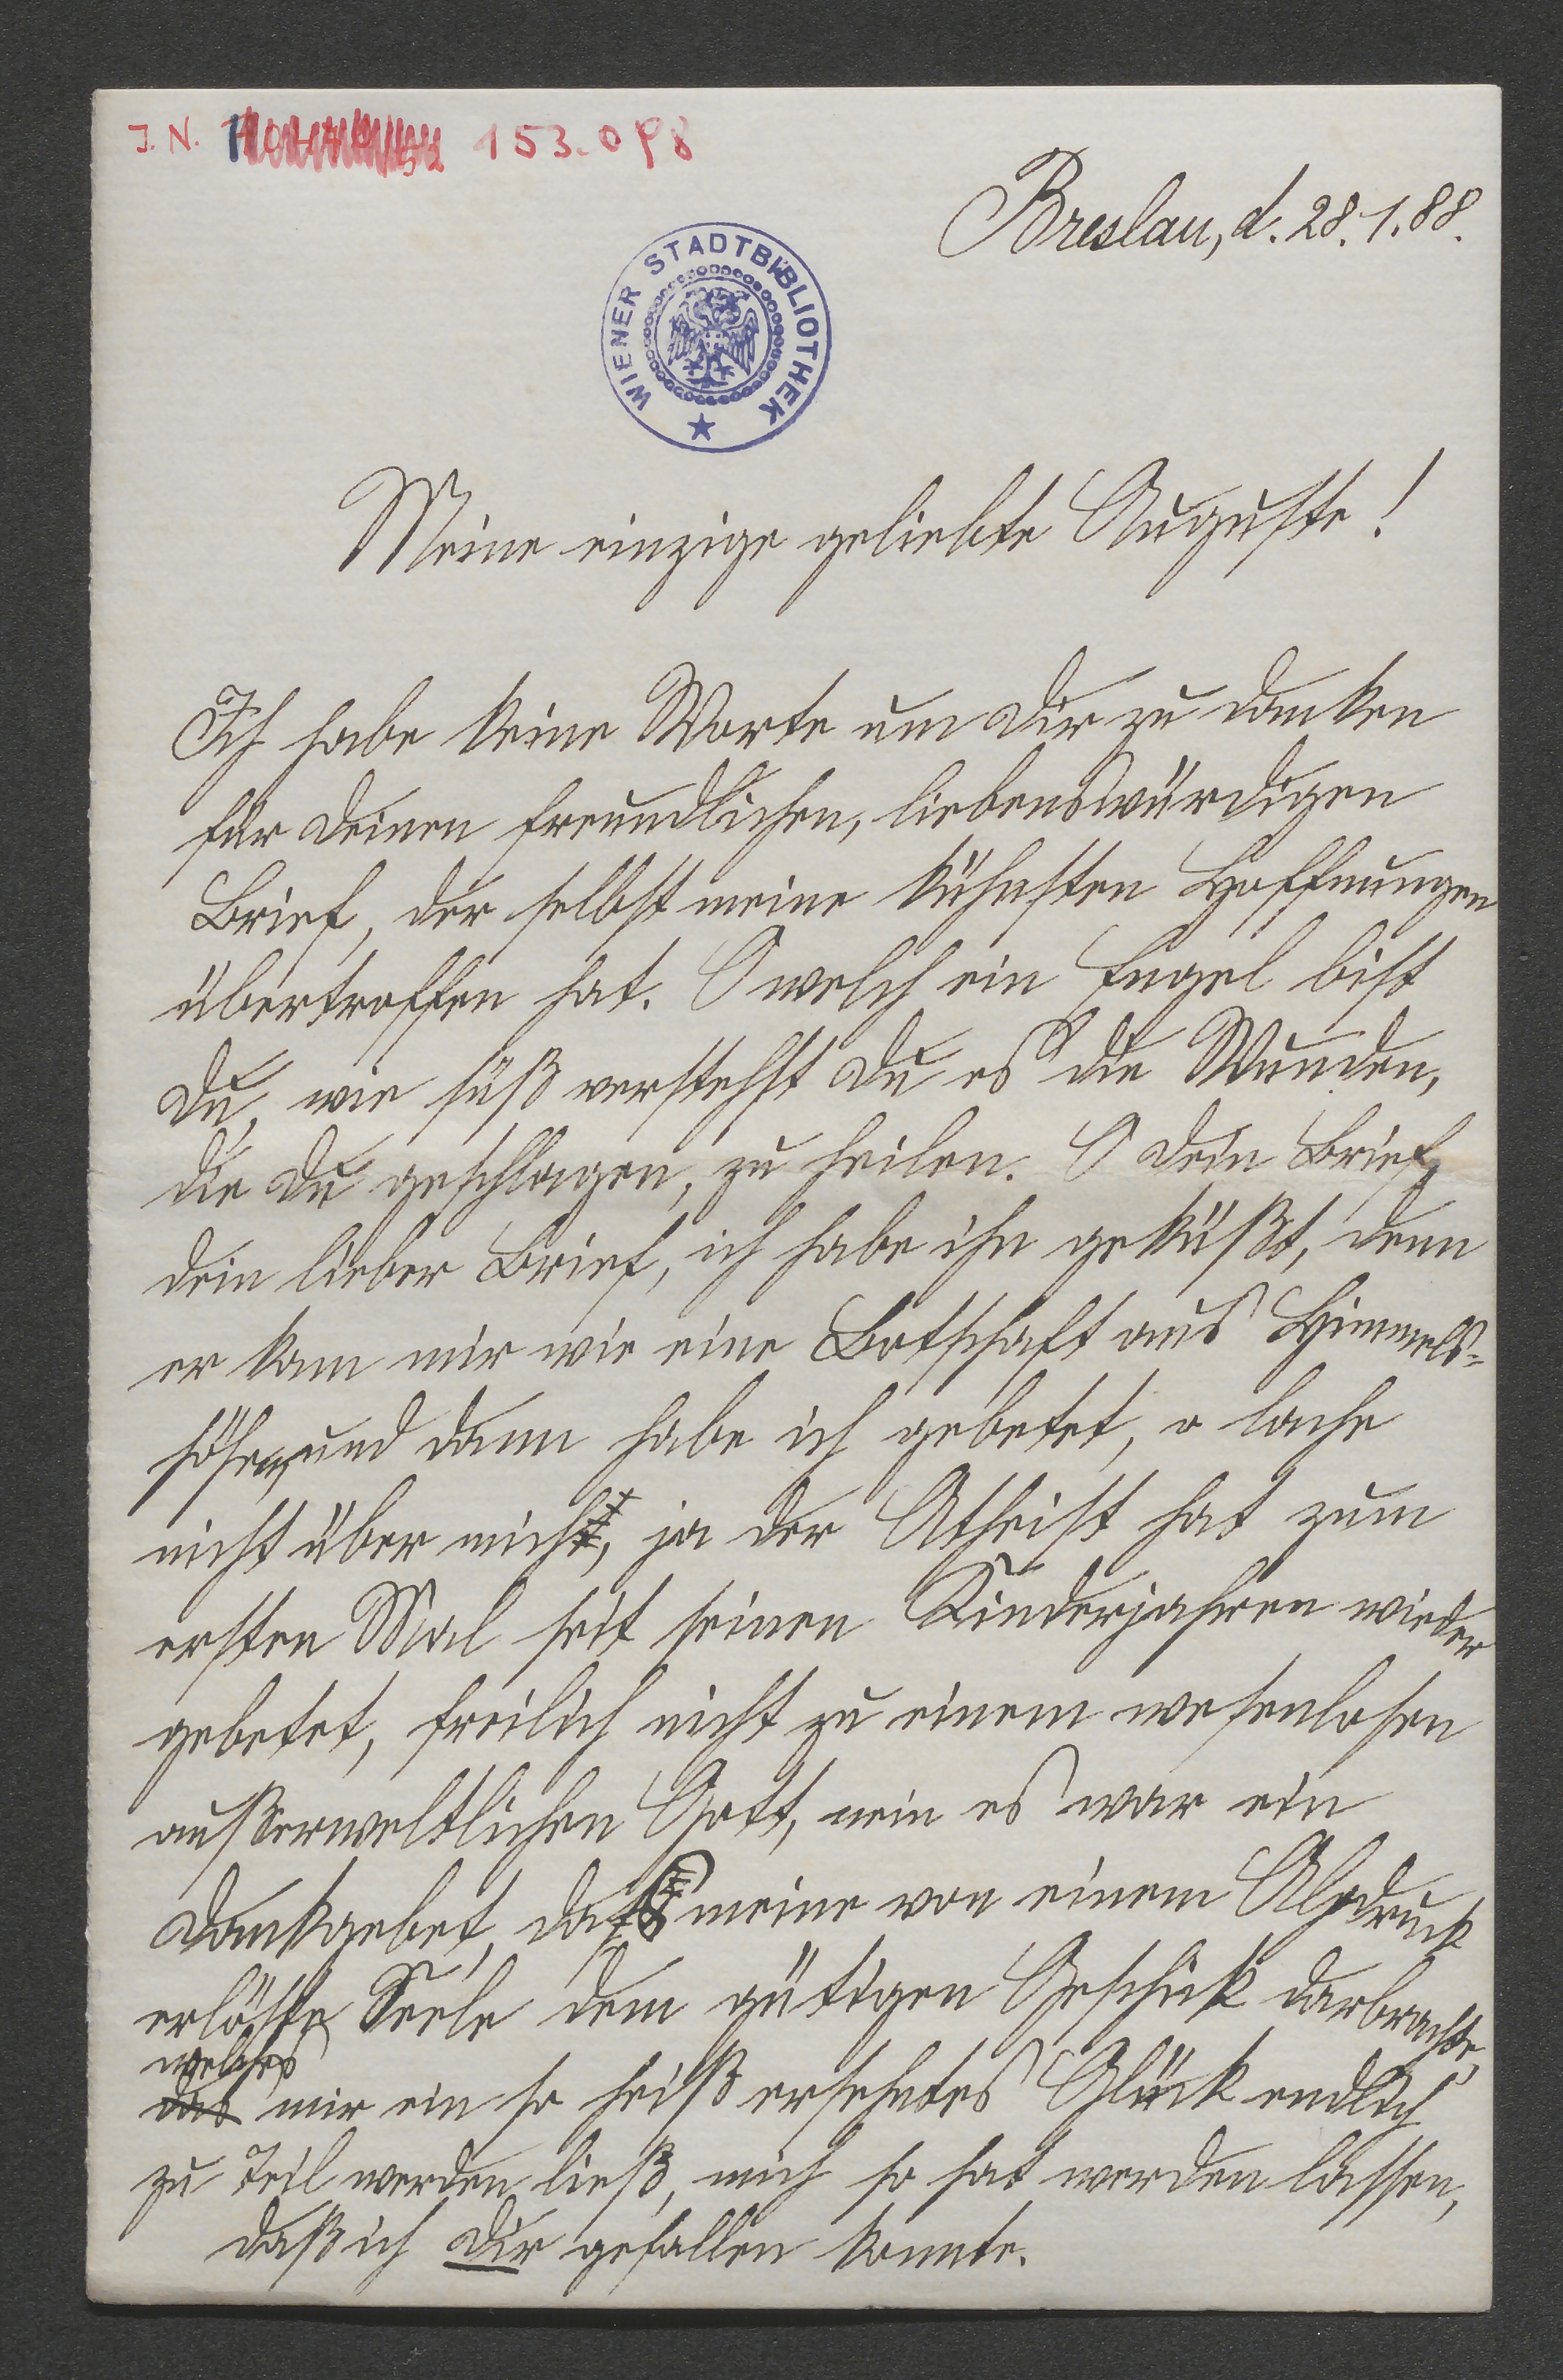 J. N. 153.098
Breslau, d. 28. 1. 88.
WIENER STADTBIBLIOTHEK
Meine einzige geliebte Auguste!
Ich habe keine Worte um Dir zu danken
für Deinen freundlichen, liebenswürdigen
Brief, der selbst meine kühnsten Hoffnungen
übertroffen hat. O welch ein Engel bist
Du, wie süß verstehst Du es die Wunden,
die Du geschlagen, zu heilen. O dein Brief,
dein lieber Brief, ich habe ihn geküßt, denn
er kam mir wie eine Botschaft aus Himmels-
höhen, und dann habe ich gebetet, o lache
nicht über mich, ja der Atheist hat zum
ersten Mal seit seinen Kinderjahren wieder
gebetet, freilich nicht zu einem wesenlosen
außerweltlichen Gott, nein es war ein
Dankgebet, das meine von einem Alpdruck
erlöste Seele dem gütigen Geschick darbrachte,
welches
das mir ein so heiß ersehntes Glück endlich
zu Teil werden ließ, mich so hat werden lassen,
daß ich Dir gefallen konnte.